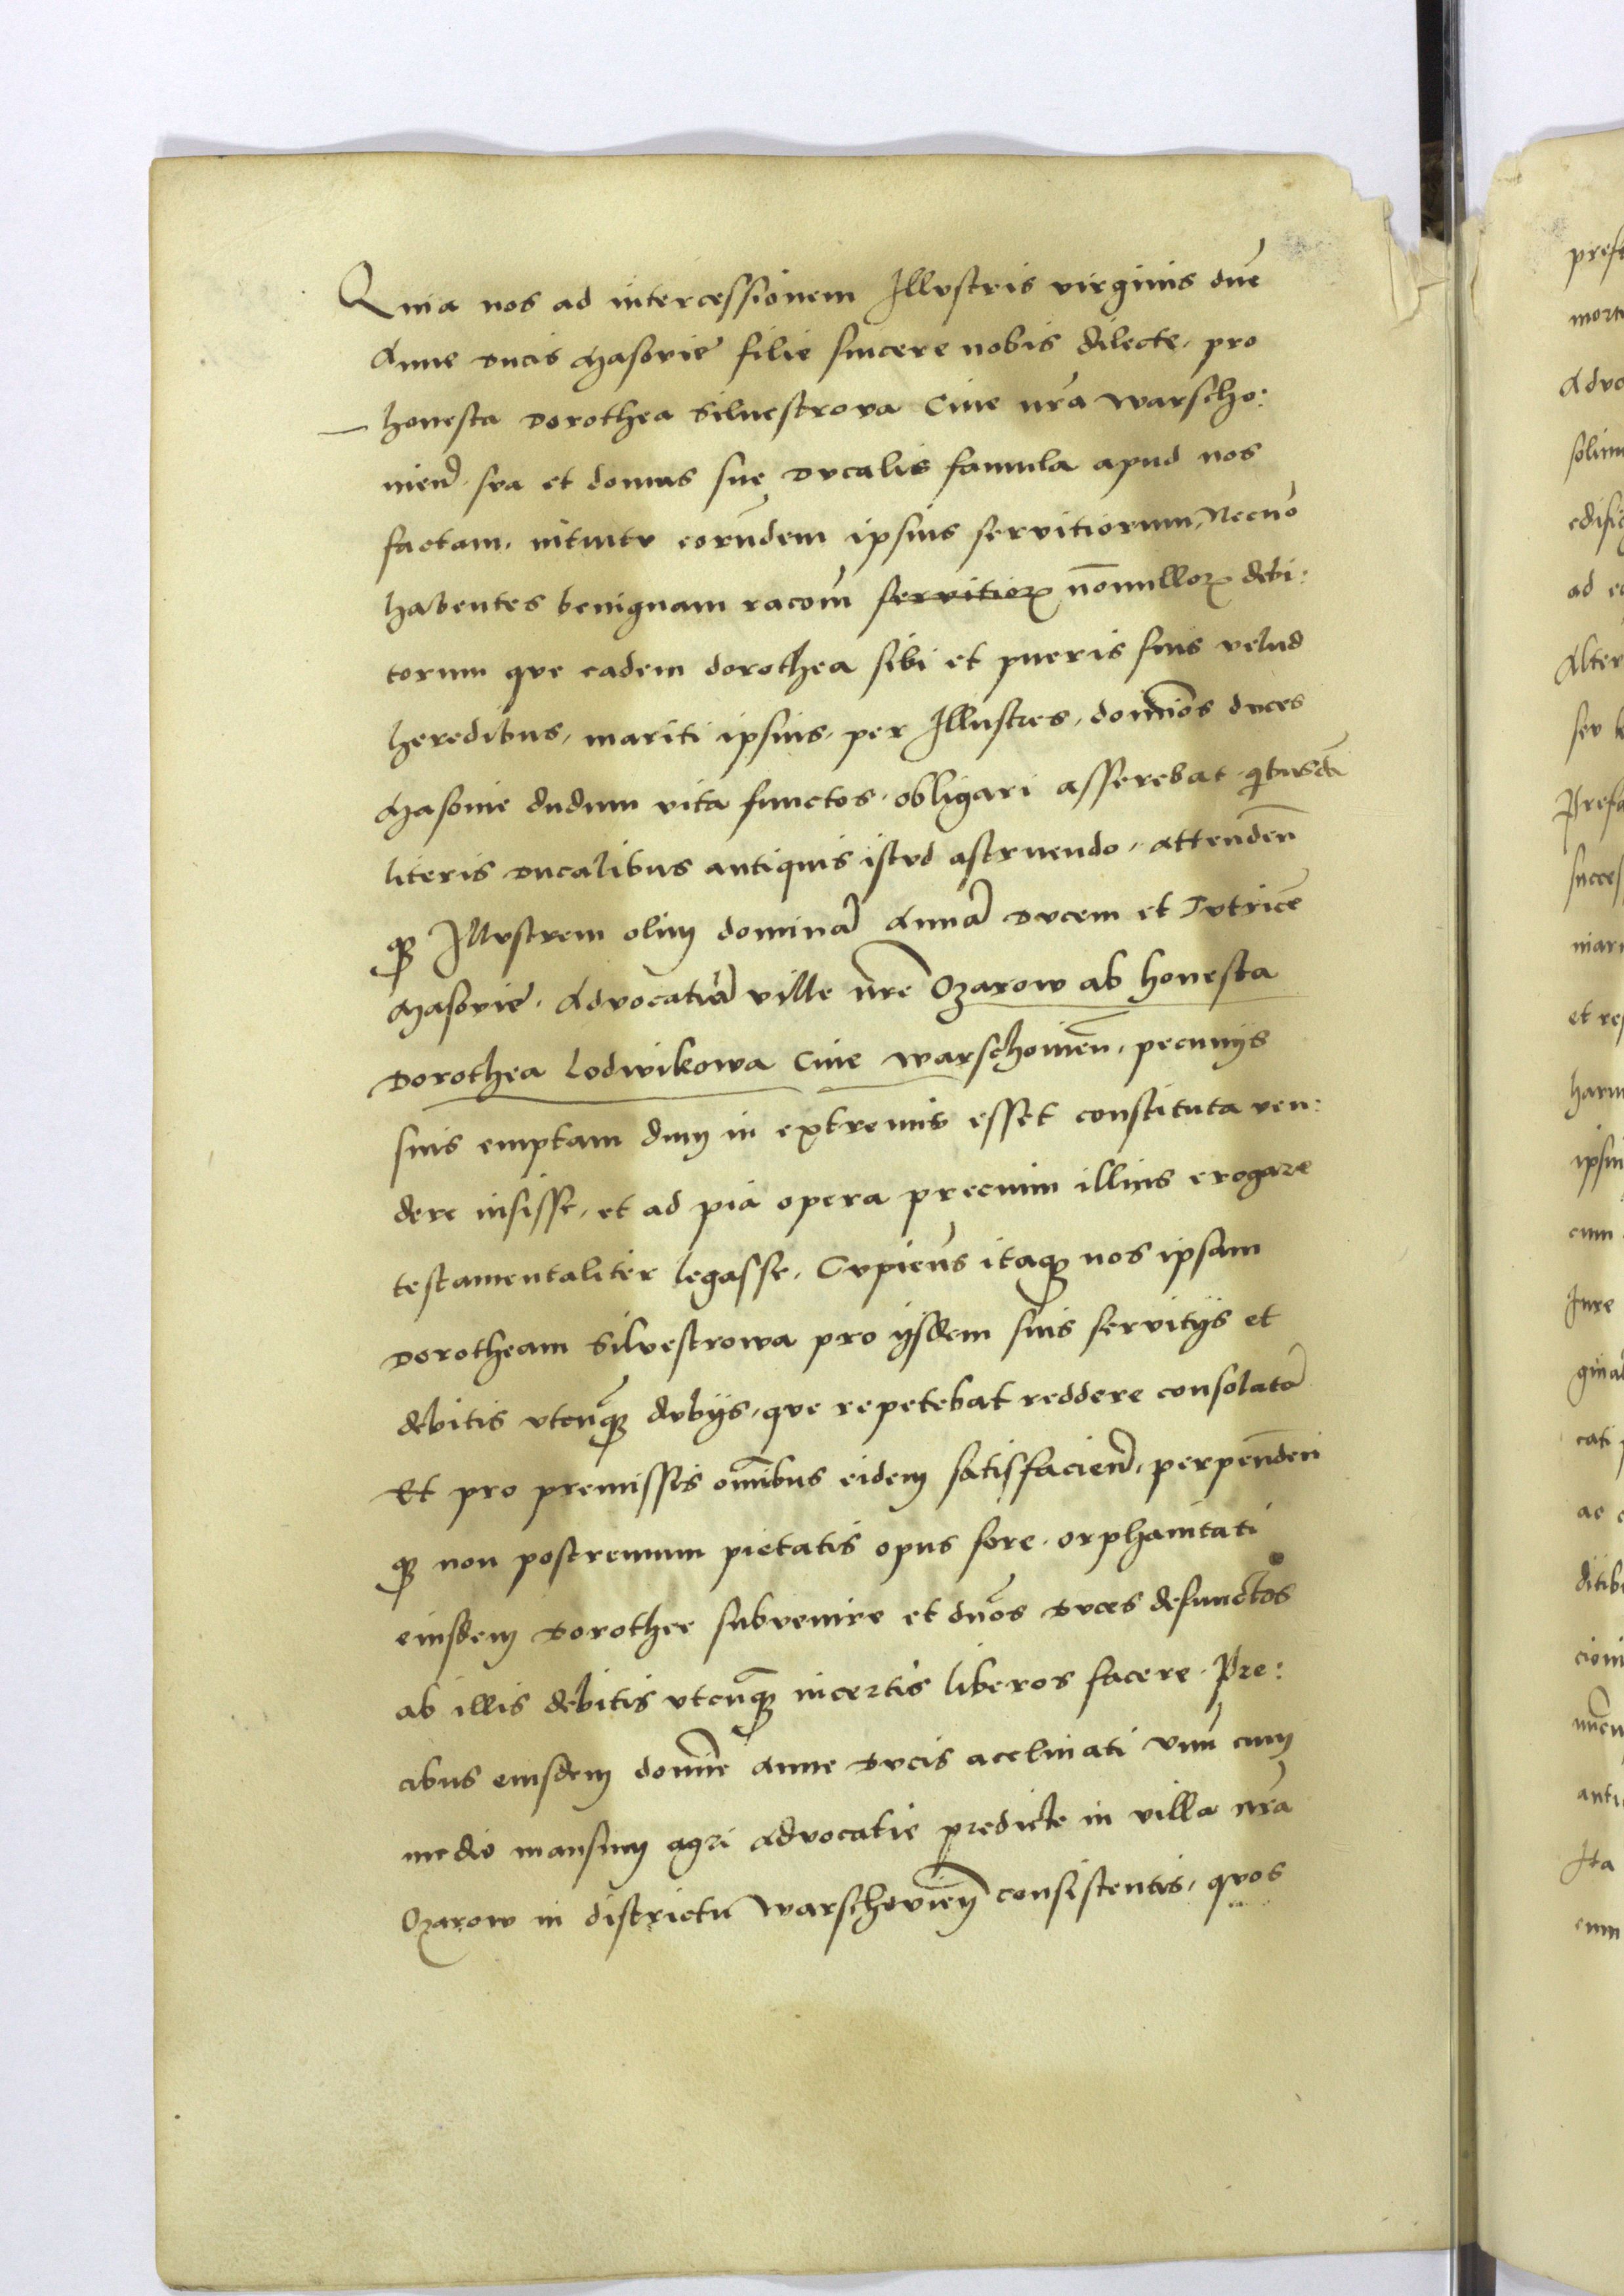 Quia nos ad intercessionem Illvstris virginis dnē
Anne Ducis Masovie filie sincere nobis dilecte, pro
honesta Dorothea Siluestrova Ciue nrā warscho:
nien̄. sva et domus suę Dvcalis famula apud nos
factam. intuitv eorūndem ipsius servitiorum, Necnō
habentes benignam racōm servitioꝝ nōnnulloꝝ debi:
torum qve eadem dorothea sibi et pueris suis velud
heredibus, mariti ipsius, per Illustres, dominōs duces
Masouie dudum vita functos. obligari asserebat. qͥbusdā
literis Ducalibus antiquis istvd astruendo, attendēn
qꝫ Illvstrem olim dominā Annā Dvcem et Tvtricē
Masovie. Advocatiā ville nrē Ozarow ab honesta
Dorothea Lodwikowa Ciue warschouien̄, pecunijs
suis emptam dum in extremis esset constituta ven:
dere iusisse, et ad pia opera precium illius erogare
testamentaliter legasse. Cvpiens itaqꝫ nos ipsam
Dorotheam Silvestrowa pro ijsdem suis servitijs et
debitis vtcūqꝫ dvbijs, qve repetebat reddere consolatā
Et pro premissis om̄ibus eidem satisfacien̄, perpendēn
qꝫ non postremum pietatis opus fore. orphanitati
eiusdem Dorothee subvenire et dnōs Dvces defunctos
ab illis debitis vtcūqꝫ incertis liberos facere. Pre:
cibus eiusdem domine Anne Dvcis acclinati vnū cum
medio mansum agri Advocatie predicte in villa nrā
Ozarow in districtu Warschovien̄ consistentis, qvos
prefa
morte
Advo
edific
ad
Alter
Prefa
succes
et res
ipsiu
cum
Iure
cati
ac
ditib
anti
Ita
cum